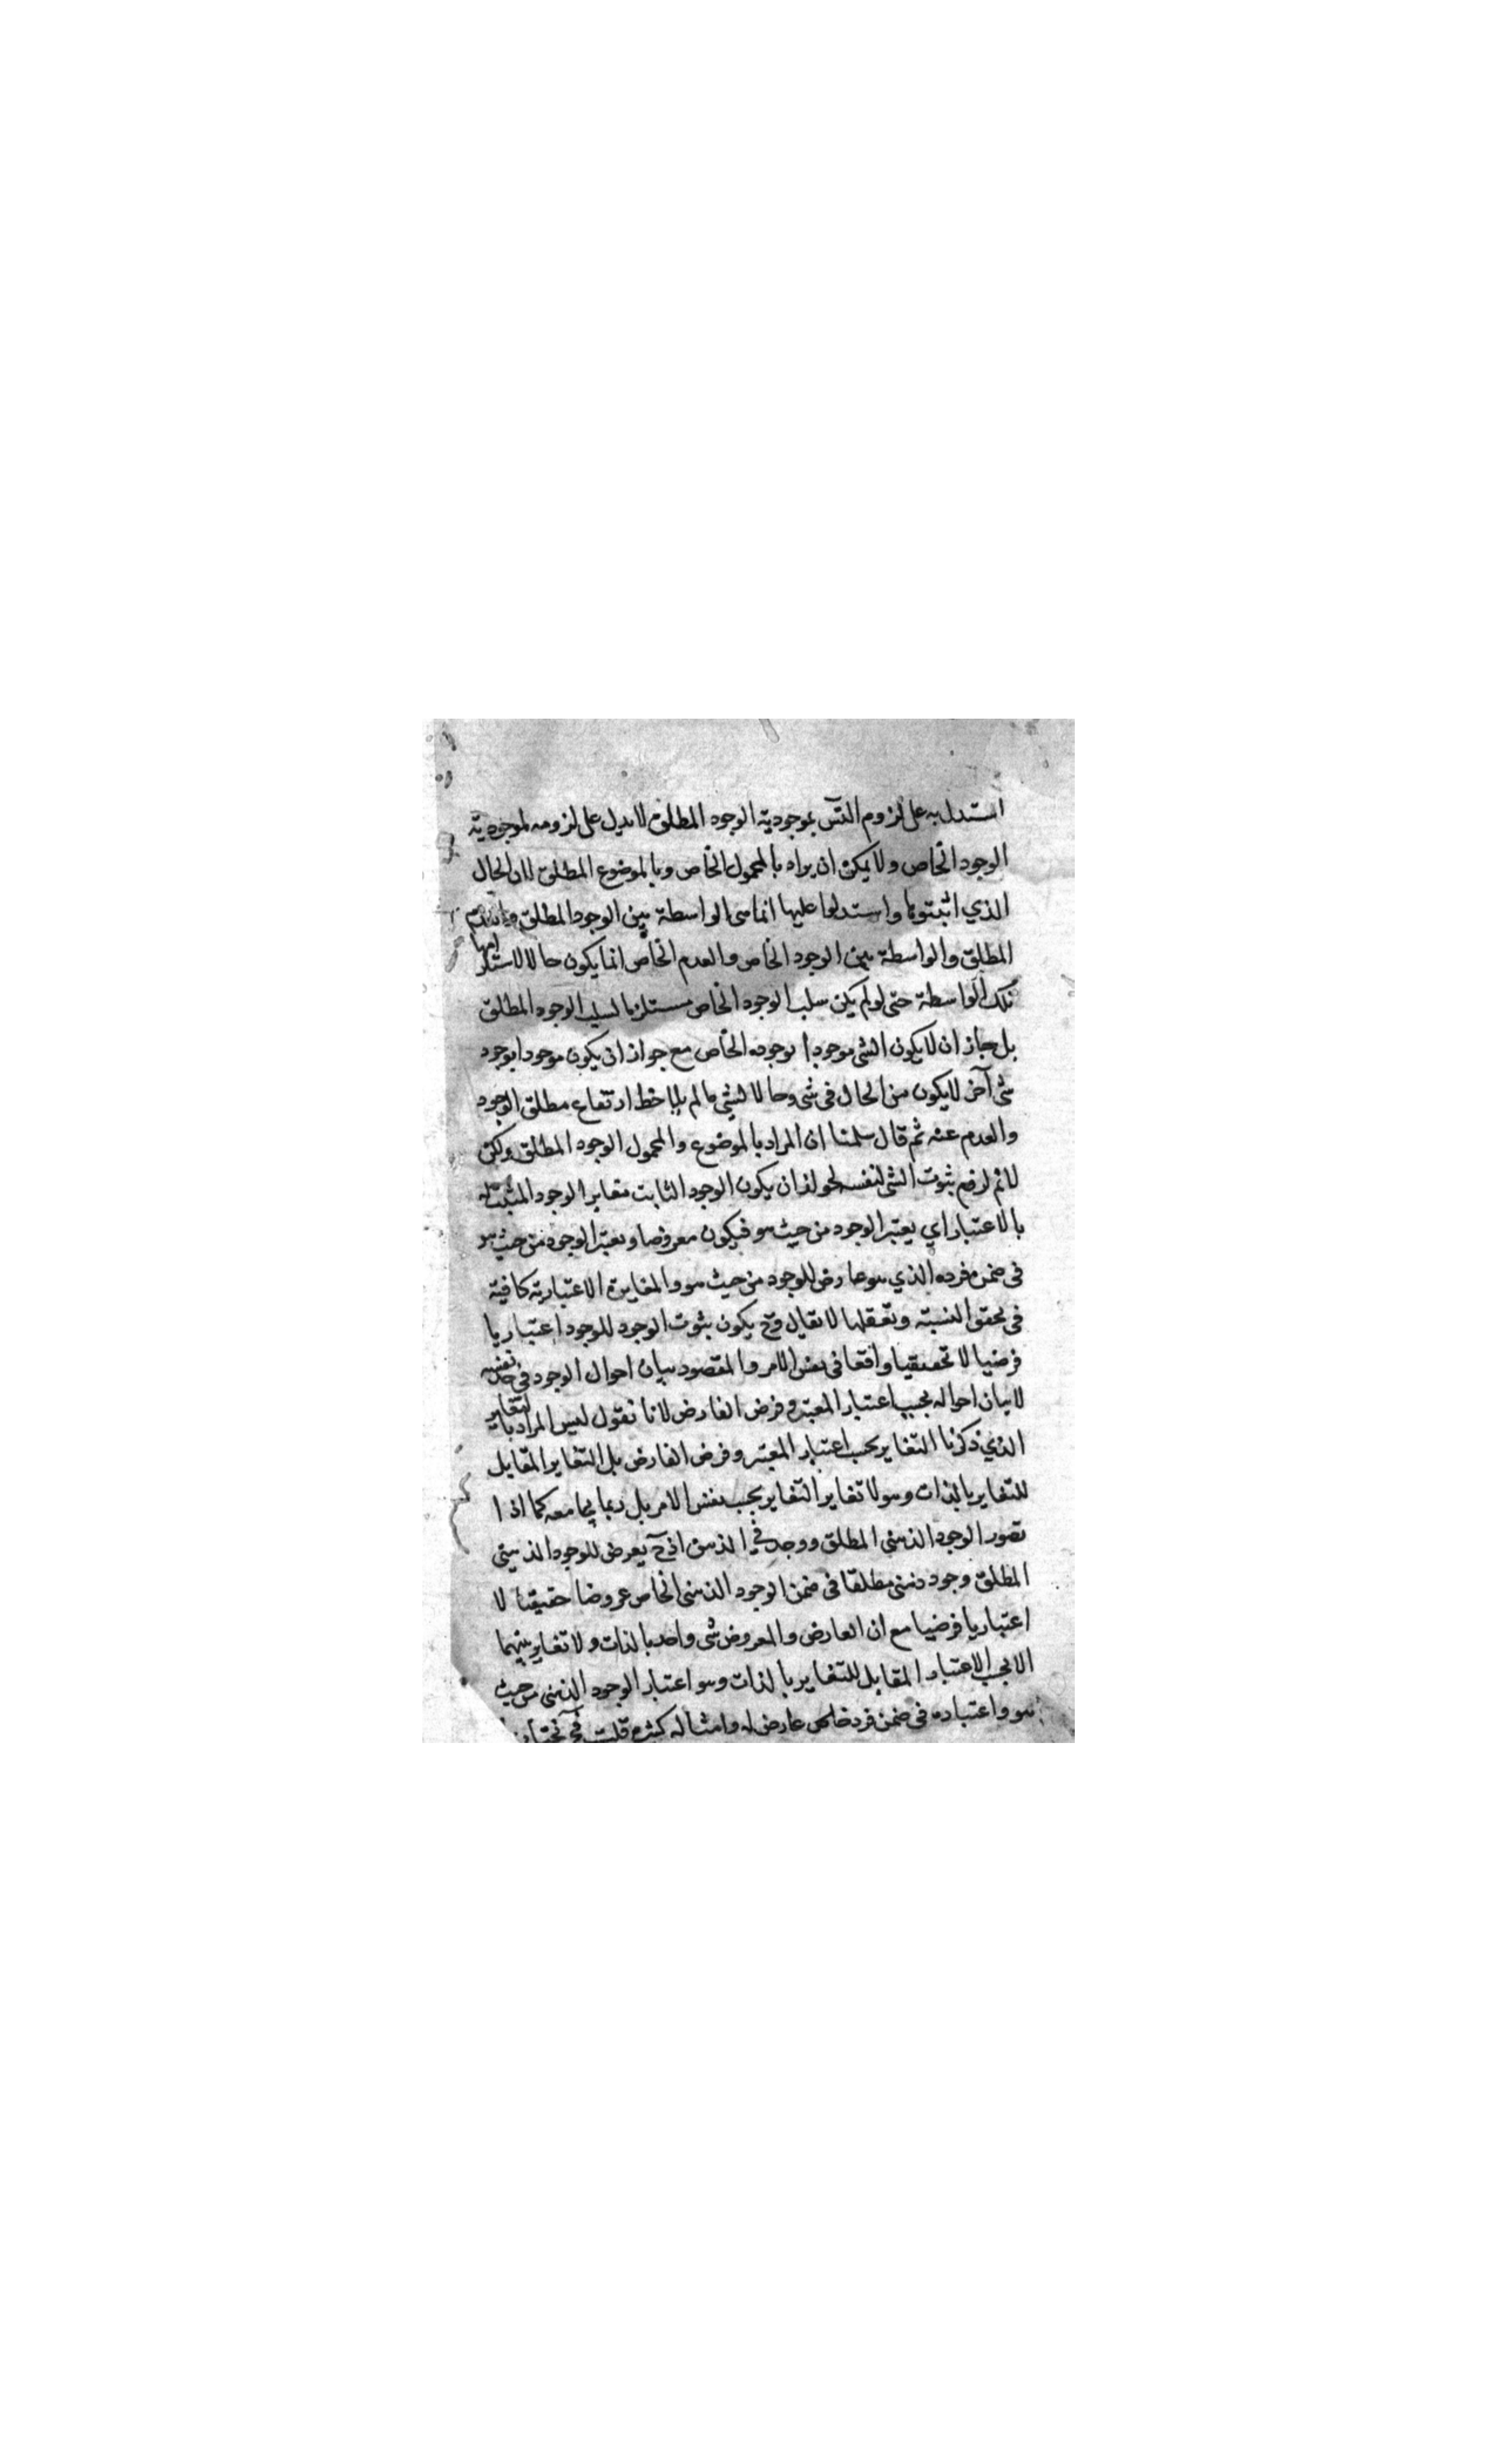 استدل به على لزوم التس بموجودية الوجود المطلق لا يدل على لزومه لموجودية
الوجود الخاص ولا يمكن ان يراد بالمحمول الخاص وبالموضوع المطلق لان الحال
الذي اثبتوها واستدلوا عليها انما هى الواسطة بين الوجود المطلق والعدم
المطلق والواسطة بين الوجود الخاص والعدم الخاص انما يكون حالا لاستلزامها
تلك الواسطة حتى لو لم يكن سلب الوجود الخاص مستلزما لسلب الوجود المطلق
بل جاز ان لا يكون الشى موجودا بوجوده الخاص مع جواز ان يكون موجودا بوجود
شى آخر لا يكون من الحال فى شى وحالا لشى ما لم يلاحظ ارتفاع مطلق الوجود
والعدم عنه ثم قال سلمنا ان المراد بالموضوع والمحمول الوجود المطلق ولكن
لانم لزوم ثبوت الشى لنفسه لجواز ان يكون الوجود الثابت مغايرا لوجود المثبت له
بالاعتبار اي يعتبر الوجود من حيث هو فيكون معروضا ويعتبر الوجود من حيث هو
فى ضمن فرده الذي هو عارض للوجود من حيث هو والمغايرة الاعتبارية كافية
فى تحقق النسبة وتعقلها لا يقال وح يكون ثبوت الوجود للوجود اعتباريا
فرضيا لا تحقيقيا واقعا فى نفس الامر والمقصود بيان احوال الوجود فى حد نفسه
لا بيان احواله بحسب اعتبار المعتبر وفرض الفارض لانا نقول ليس المراد بالتغاير
الذي ذكرنا التغاير بحسب اعتبار المعتبر وفرض الفارض بل التغاير المقابل
للتغاير بالذات وهو لا تغاير التغاير بحسب نفس الامر بل ربما يجامعه كما اذا
تصور الوجود الذهنى المطلق ووجد في الذهن اذ ح يعرض للوجود الذهنى
المطلق وجود ذهنى مطلقا فى ضمن الوجود الذهنى الخاص عروضا حقيقيا لا
اعتباريا فرضيا مع ان العارض والمعروض شى واحد بالذات ولا تغاير بينهما
الا بحسب الاعتبار المقابل للتغاير بالذات وهو اعتبار الوجود الذهنى من حيث
هو واعتباره فى ضمن فرد خاص عارض له وامثاله كثيرة قلت فح